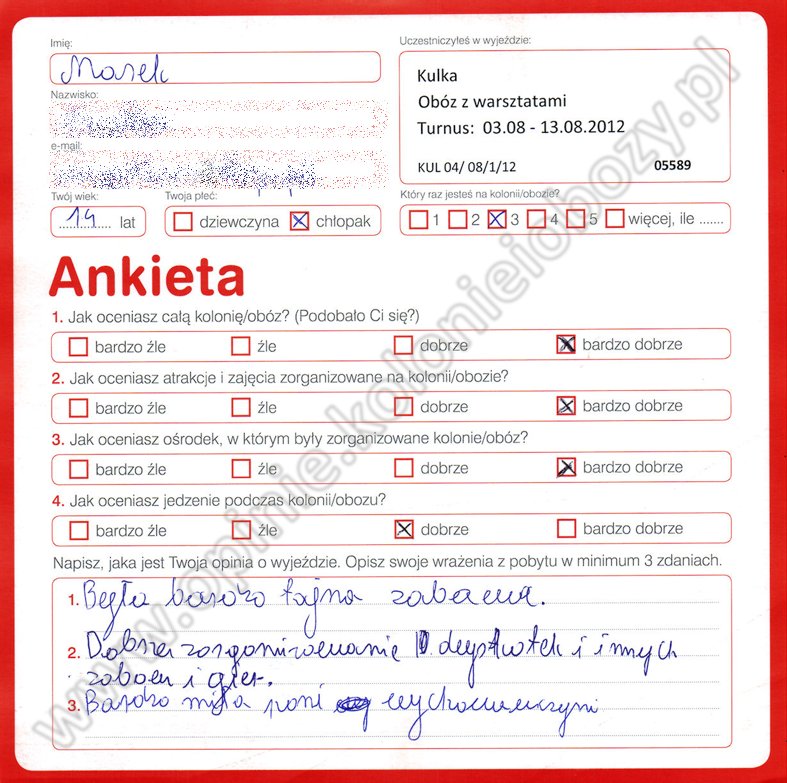 Imię:
Uczestniczyłeś w wyjeździe:
Marek
Kulka
Obóz z warsztatami
Turnus: 03.08 - 13.08.2012
KUL 04/ 08/1/12 05589
Nazwisko:
e-mail:
Twój wiek:
Twoja płeć:
Który raz jesteś na kolonii/obozie?
14 lat
dziewczyna chłopak
1 2 3 4 5 więcej, ile .......
Ankieta
1. Jak oceniasz całą kolonię/obóz? (Podobało Ci się?)
bardzo źle źle dobrze bardzo dobrze
2. Jak oceniasz atrakcje i zajęcia zorganizowane na kolonii/obozie?
bardzo źle źle dobrze bardzo dobrze
3. Jak oceniasz ośrodek, w którym były zorganizowane kolonie/obóz?
bardzo źle źle dobrze bardzo dobrze
4. Jak oceniasz jedzenie podczas kolonii/obozu?
bardzo źle źle dobrze bardzo dobrze
Napisz, jaka jest Twoja opinia o wyjeździe. Opisz swoje wrażenia z pobytu w minimum 3 zdaniach.
1. Była bardzo fajna zabawa.
2. Dobrze zorganizowanie dyskotek i innych
zabaw i gier.
3. Bardzo miła pani wychowawczyni
www.opinie.kolonieiobozy.pl